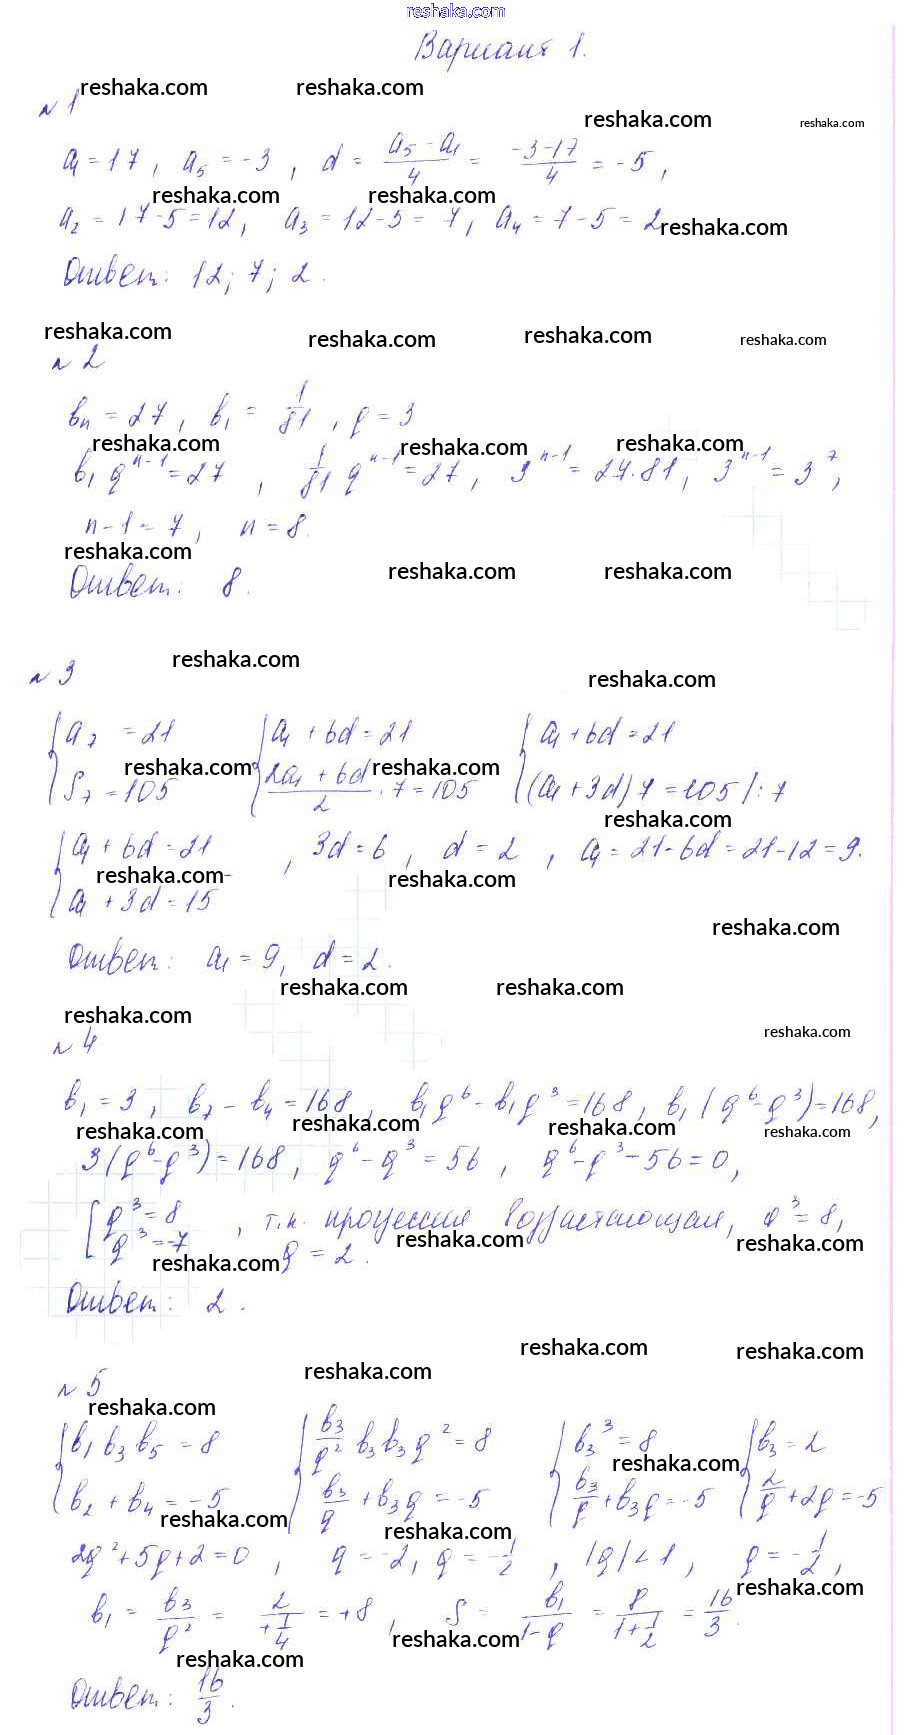 reshaka.com
Вариант 1.
reshaka.com reshaka.com
№ 1
reshaka.com reshaka.com
a₁ = 17, a₅ = -3, d = (a₅ - a₁)/4 = (-3-17)/4 = -5,
reshaka.com reshaka.com
a₂ = 17-5 = 12, a₃ = 12-5 = 7, a₄ = 7-5 = 2 reshaka.com
Ответ: 12; 7; 2.
reshaka.com reshaka.com reshaka.com reshaka.com
№ 2
bₙ = 27, b₁ = 1/81, q = 3
reshaka.com reshaka.com reshaka.com
b₁ qⁿ⁻¹ = 27, 1/81 qⁿ⁻¹ = 27, 3ⁿ⁻¹ = 27·81, 3ⁿ⁻¹ = 3⁷,
n-1 = 7, n = 8.
reshaka.com reshaka.com reshaka.com
Ответ: 8.
reshaka.com reshaka.com
№ 3
{ a₇ = 21 { a₁ + 6d = 21 { a₁ + 6d = 21
reshaka.com reshaka.com
S₇ = 105 (2a₁ + 6d)/2 · 7 = 105 (a₁ + 3d) 7 = 105 | : 7
reshaka.com
{ a₁ + 6d = 21, 3d = 6, d = 2, a₁ = 21-6d = 21-12 = 9.
reshaka.com reshaka.com
a₁ + 3d = 15
reshaka.com
Ответ: a₁ = 9, d = 2.
reshaka.com reshaka.com
reshaka.com reshaka.com
№ 4
b₁ = 3, b₇ - b₄ = 168, b₁q⁶ - b₁q³ = 168, b₁(q⁶-q³) = 168,
reshaka.com reshaka.com reshaka.com reshaka.com
3(q⁶-q³) = 168, q⁶ - q³ = 56, q⁶ - q³ - 56 = 0,
[ q³ = 8
q³ = -7, т.к. прогрессия возрастающая, q³ = 8,
reshaka.com reshaka.com
reshaka.com q = 2.
Ответ: 2.
reshaka.com reshaka.com
reshaka.com
№ 5
reshaka.com
{ b₁ b₃ b₅ = 8 { b₃/q² b₃ b₃ q² = 8 { b₃³ = 8 { b₃ = 2
reshaka.com
b₂ + b₄ = -5 b₃/q + b₃q = -5 b₃/q + b₃q = -5 2/q + 2q = -5
reshaka.com reshaka.com
2q² + 5q + 2 = 0, q = -2, q = -1/2, |q| < 1, q = -1/2,
reshaka.com
b₁ = b₃/q² = 2/(+1/4) = +8, S = b₁/(1-q) = 8/(1+1/2) = 16/3.
reshaka.com reshaka.com
Ответ: 16/3.